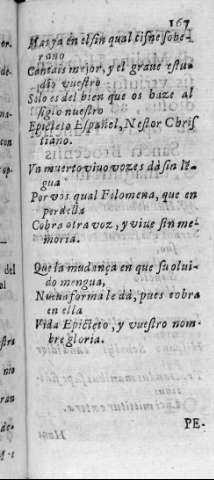 167
Mas ya en el fin qual cisne sobe-
rano
Cantais mejor, y el graue estu-
dio vuestro
Solo es del bien que os haze al
siglo nuestro
Epicteto Español, Nestor Chris
tiano.
Vn muerto viuo vozes dà sin lē
gua
Por vòs qual Filomena, que en
perdella
Cobra otra voz, y viue sin me-
moria.
Que la mudança en que su olui-
do mengua,
Nueua forma le dà, pues cobra
en ella
Vida Epicteto, y vuestro nom-
bre gloria.
PE-